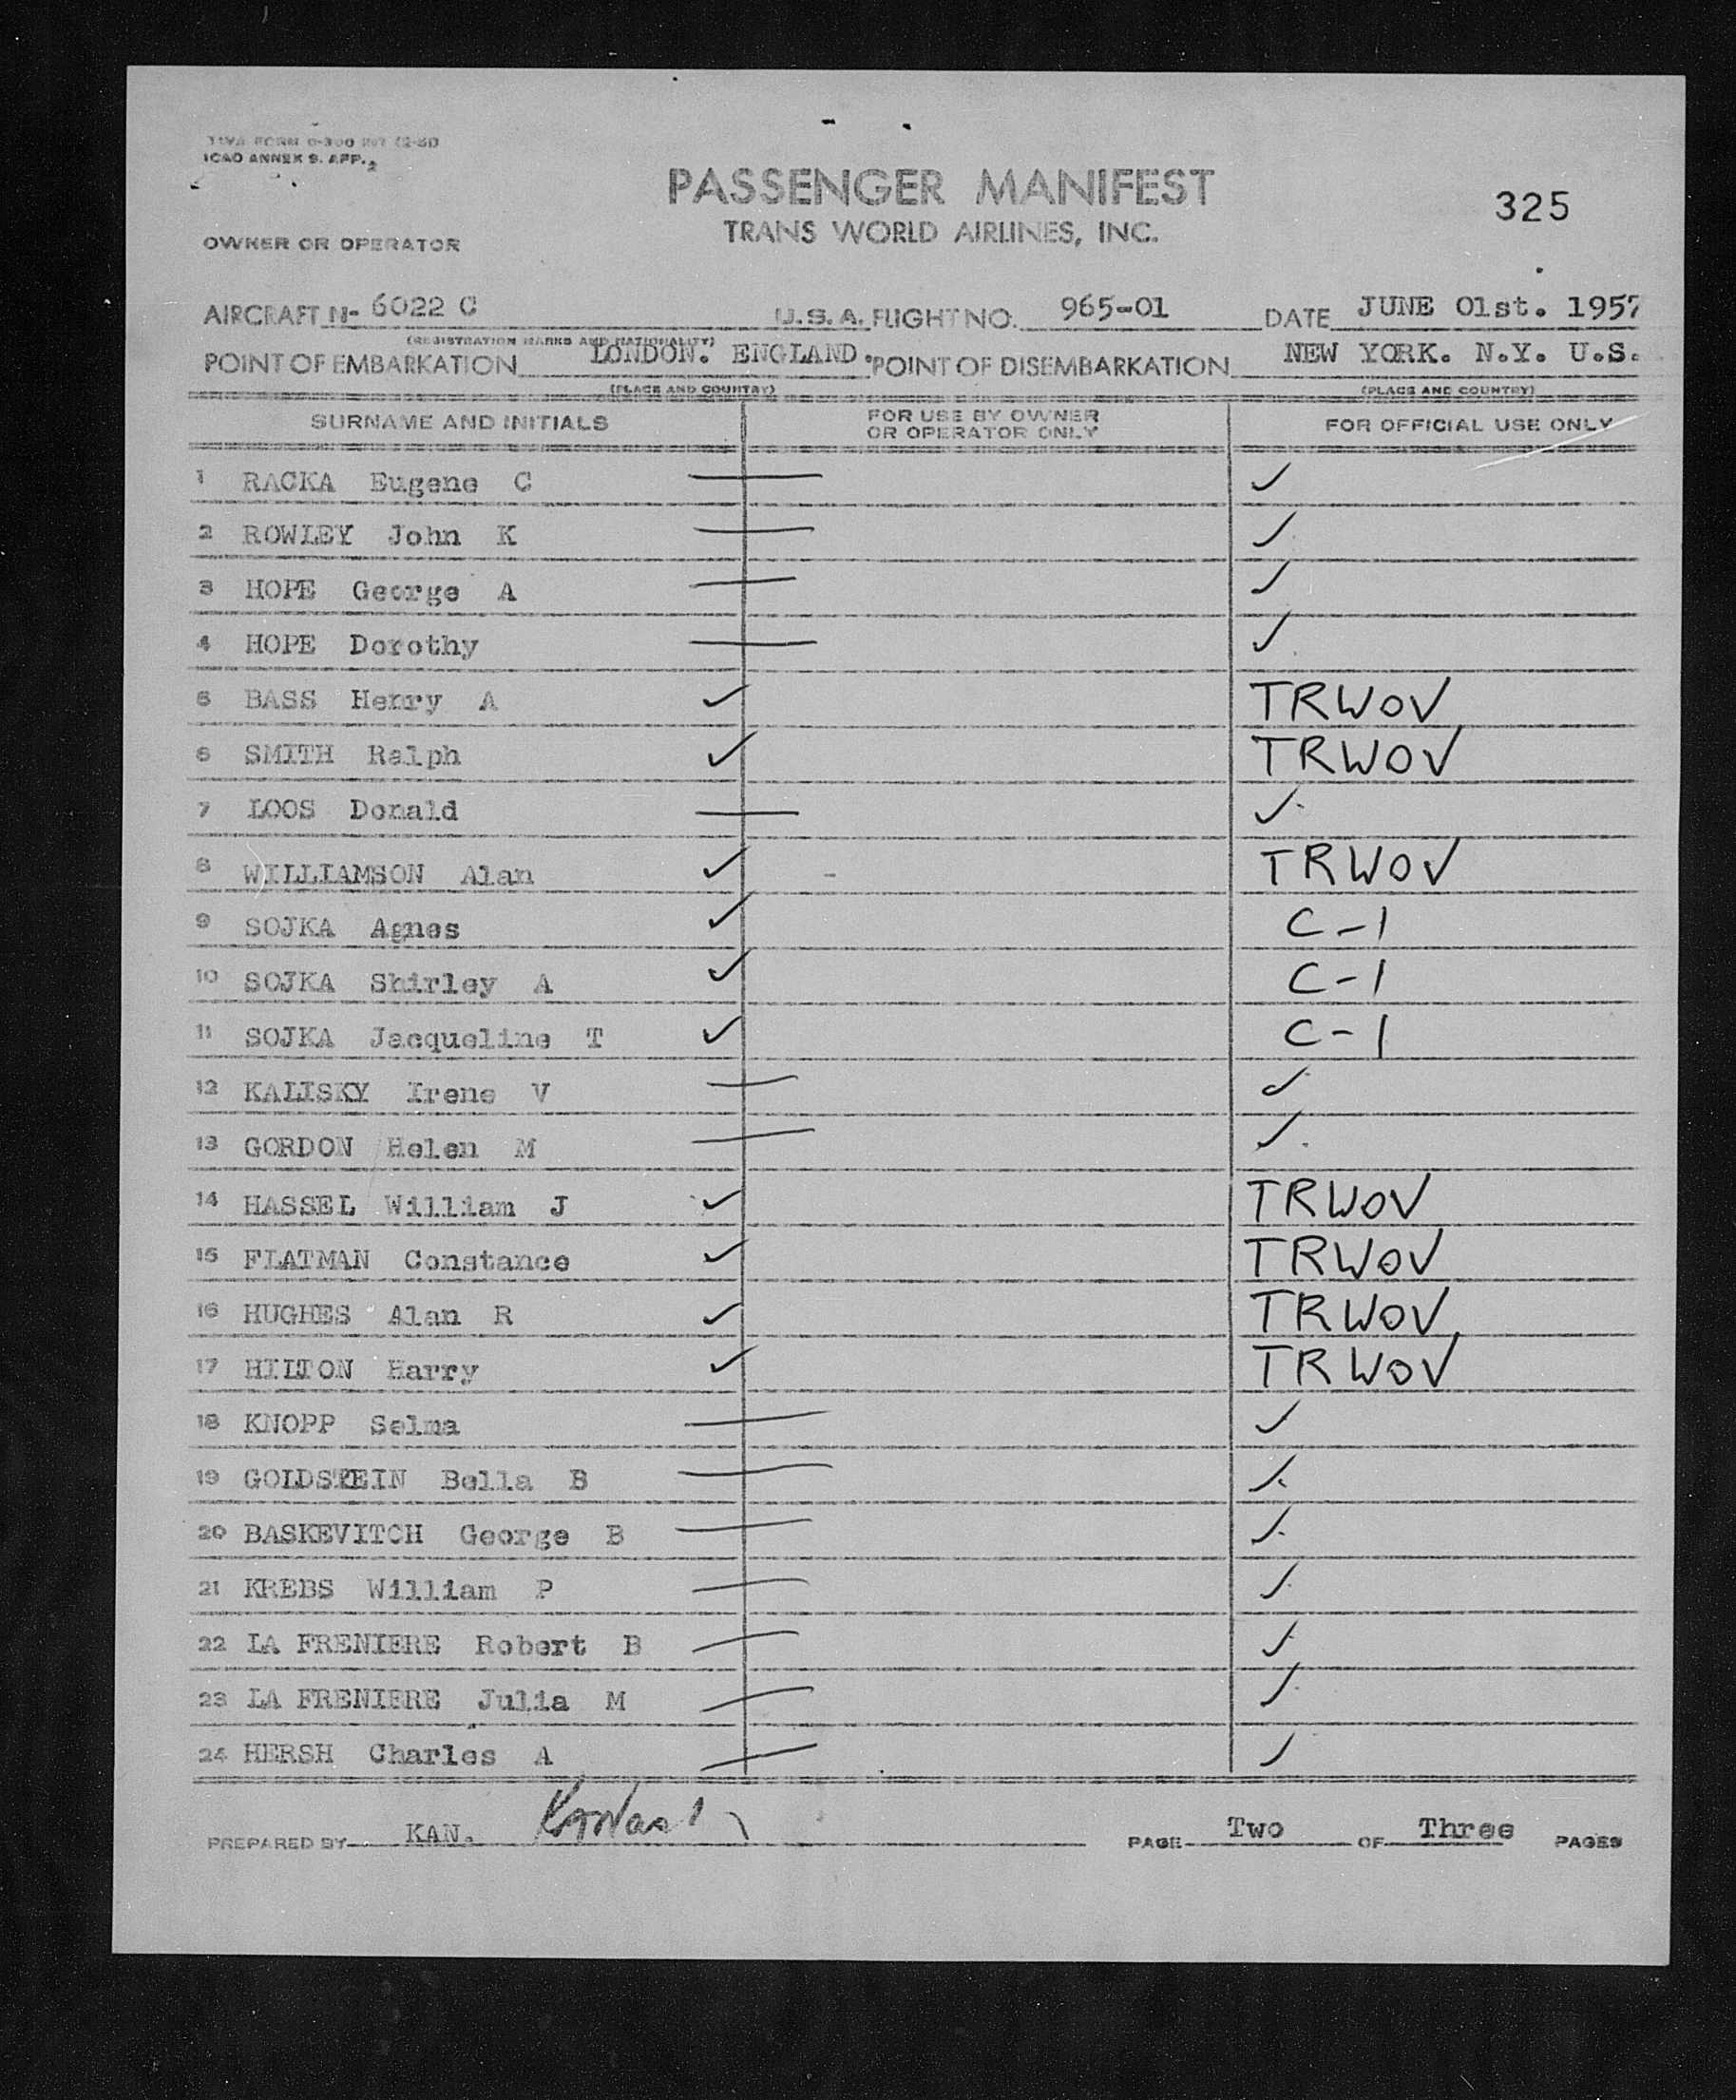 TWA FORM 0-300 INT (2-51)
ICAO ANNEX 9. APP. 2
PASSENGER MANIFEST
325
TRANS WORLD AIRLINES, INC.
OWNER OR OPERATOR
AIRCRAFT N- 6022 C U.S.A. FLIGHT NO. 965-01 DATE JUNE 01st. 1957
(REGISTRATION MARKS AND NATIONALITY)
POINT OF EMBARKATION LONDON. ENGLAND. POINT OF DISEMBARKATION NEW YORK. N.Y. U.S.
(PLACE AND COUNTRY) (PLACE AND COUNTRY)
SURNAME AND INITIALS FOR USE BY OWNER OR OPERATOR ONLY FOR OFFICIAL USE ONLY
1 RACKA Eugene C — ✓
2 ROWLEY John K — ✓
3 HOPE George A — ✓
4 HOPE Dorothy — ✓
5 BASS Henry A ✓ TRWOV
6 SMITH Ralph ✓ TRWOV
7 LOOS Donald — ✓
8 WILLIAMSON Alan ✓ TRWOV
9 SOJKA Agnes ✓ C-1
10 SOJKA Shirley A ✓ C-1
11 SOJKA Jacqueline T ✓ C-1
12 KALISKY Irene V — ✓
13 GORDON Helen M — ✓
14 HASSEL William J ✓ TRWOV
15 FLATMAN Constance ✓ TRWOV
16 HUGHES Alan R ✓ TRWOV
17 HILTON Harry ✓ TRWOV
18 KNOPP Selma — ✓
19 GOLDSTEIN Bella B — ✓
20 BASKEVITCH George B — ✓
21 KREBS William P — ✓
22 LA FRENIERE Robert B — ✓
23 LA FRENIERE Julia M — ✓
24 HERSH Charles A — ✓
PREPARED BY KAN. PAGE Two OF Three PAGES